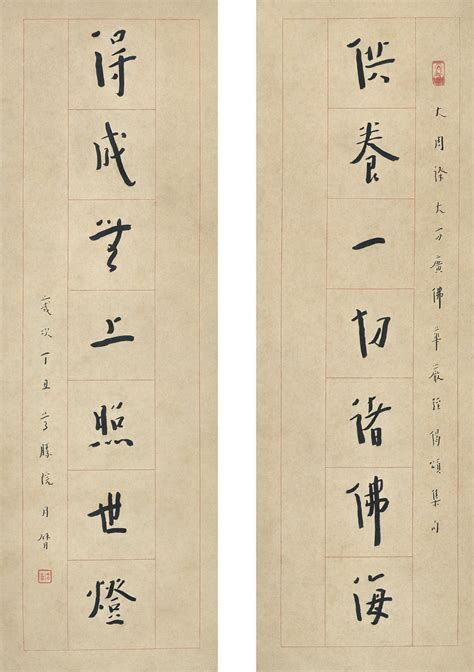 大周譯大方廣佛華嚴經偈頌集句
供養一切諸佛海
得成無上照世燈
歲次丁丑亭勝院月臂